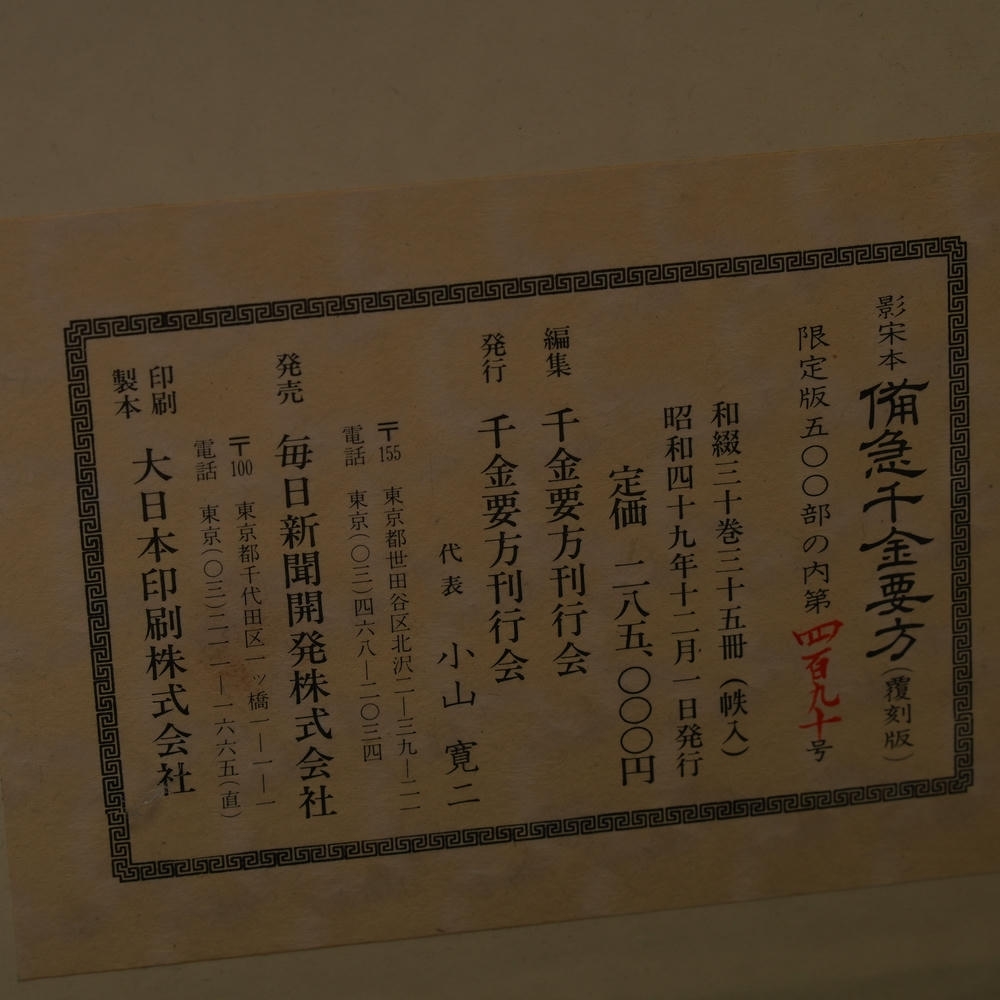 影宋本 備急千金要方（覆刻版）
限定版五〇〇部の内第四百九十号
和綴三十巻三十五冊（帙入）
昭和四十九年十二月一日発行
定価 二八五、〇〇〇円
編集 千金要方刊行会
発行 千金要方刊行会
代表 小山 寛二
〒155 東京都世田谷区北沢二―三九―二一
電話 東京（〇三）四六八―二〇三四
発売 毎日新聞開発株式会社
〒100 東京都千代田区一ッ橋一―一―一
電話 東京（〇三）二一一―一六六五（直）
印刷
製本 大日本印刷株式会社